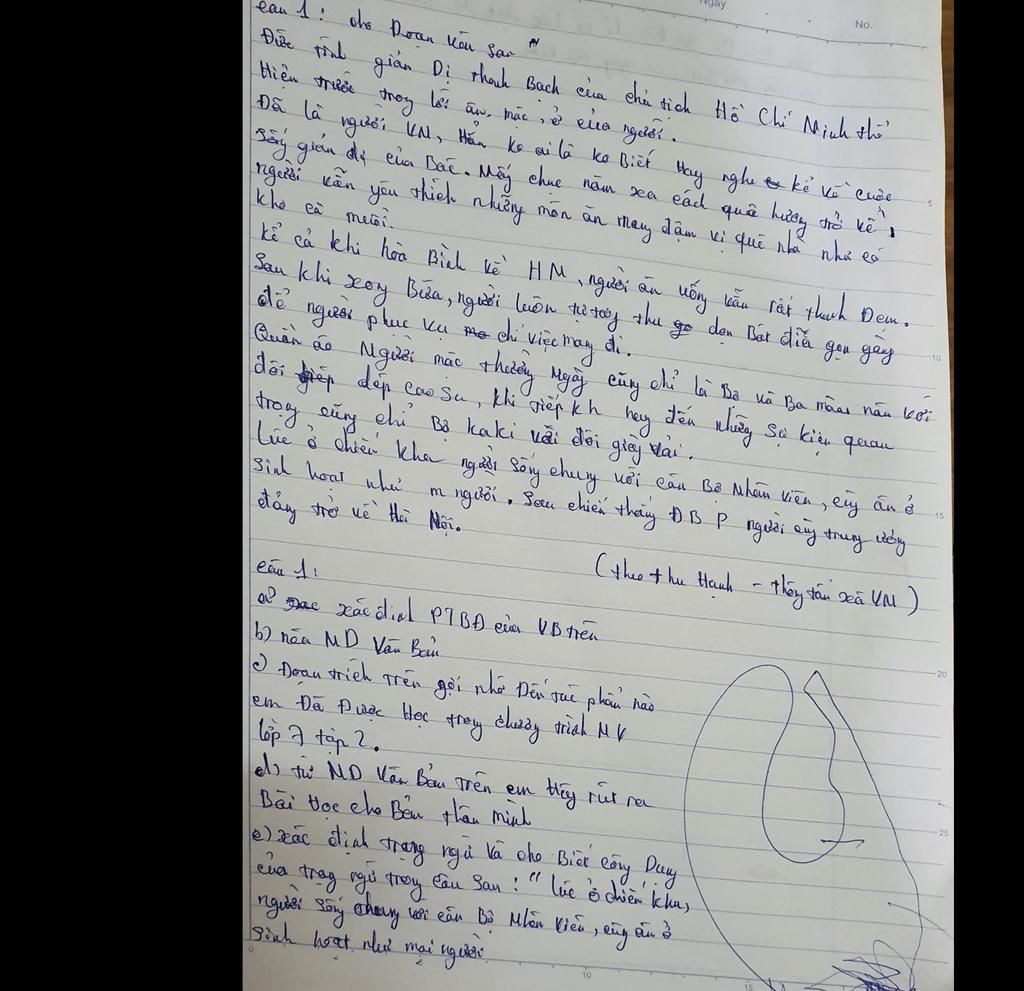 Ngày
No.
câu 1: cho Đoạn văn sau "
Đức tính giản Dị thanh Bạch của chủ tịch Hồ Chí Minh thể
Hiện trước trong lối ăn, mặc, ở của người.
Đã là người VN, Hẳn ko ai là ko Biết Hay nghe kể về cuộc
sống giản dị của Bác. Mấy chục năm xa cách quê hương trở về,
người vẫn yêu thích những món ăn mang đậm vị quê nhà như cá
kho cà muối.
Kể cả khi hòa Bình về HN, người ăn uống vẫn rất thanh Đạm.
Sau khi xong Bữa, người luôn tự tay thu dọn Bát đĩa gọn gàng
để người phục vụ chỉ việc mang đi.
Quần áo Người mặc thường Ngày cũng chỉ là Bộ và Ba màu nâu với
đôi dép cao su, khi tiếp kh hay đến những sự kiện quan
trọng cũng chỉ Bộ kaki với đôi giày vải.
Lúc ở chiến khu người sống chung với cán Bộ Nhân viên, cùng ăn ở
sinh hoạt như m người. Sau chiến thắng ĐBP người cùng trung ương
đảng trở về Hà Nội.
(theo thu Hạnh - thông tấn xã VN)
câu 1:
a) xác định PTBĐ của VB trên
b) nêu ND Văn Bản
c) Đoạn trích trên gợi nhớ Đến tác phẩm nào
em Đã Được Học trong chương trình NV
lớp 7 tập 2.
d) từ ND Văn Bản trên em Hãy rút ra
Bài Học cho Bản thân mình
e) xác định trạng ngữ Và cho Biết công Dụng
của trạng ngữ trong câu sau: "Lúc ở chiến khu,
người sống chung với cán Bộ Nhân Viên, cùng ăn ở
sinh hoạt như mọi người